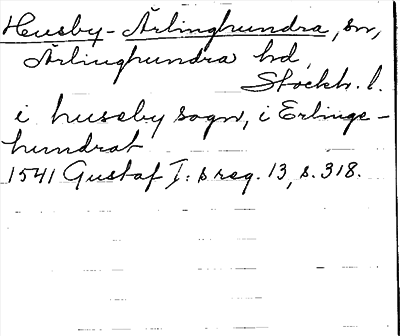 Husby-Ärlinghundra, sn,
Ärlinghundra hd,
Stockh. l.
i huseby sogn, i Erlinge-
hundrat
1541 Gustaf I:s reg. 13, s. 318.